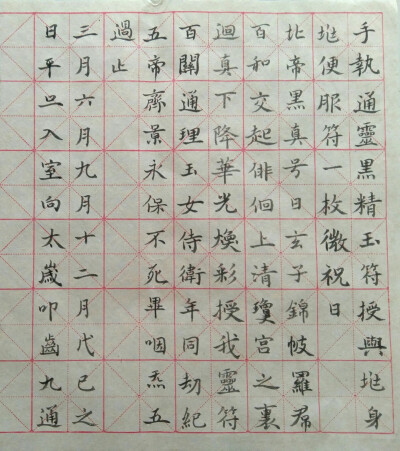 手執通靈黑精玉符授與兆身
兆便服符一枚微祝曰
北帝黑真号曰玄子錦帔羅帬
百和交起俳佪上清瓊宮之裏
迴真下降華光煥彩授我靈符
百關通理玉女侍衛年同劫紀
五帝齊景永保不死畢咽炁五
過止
三月六月九月十二月戊己之
日平旦入室向太歲叩齒九通